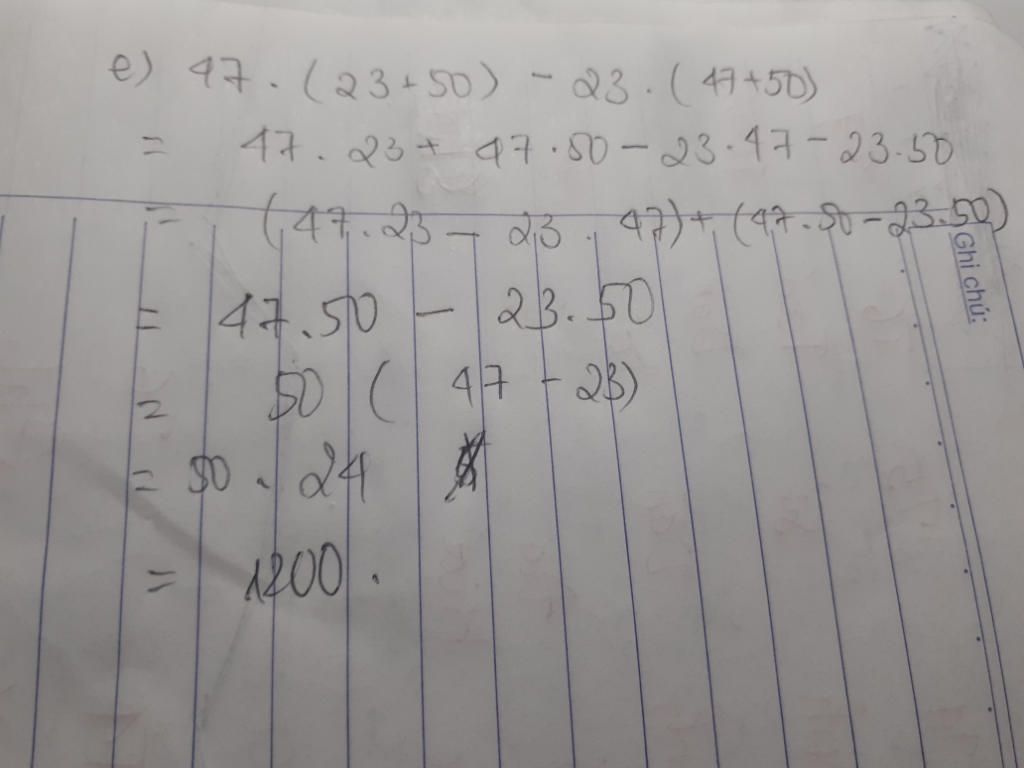 e) 47 . (23+50) - 23 . (47+50)
= 47 . 23 + 47 . 50 - 23 . 47 - 23.50
= (47.23 - 23 . 47) + (47.50 - 23.50)
Ghi chú:
= 47.50 - 23.50
= 50 ( 47 - 23)
= 50 . 24
= 1200 .